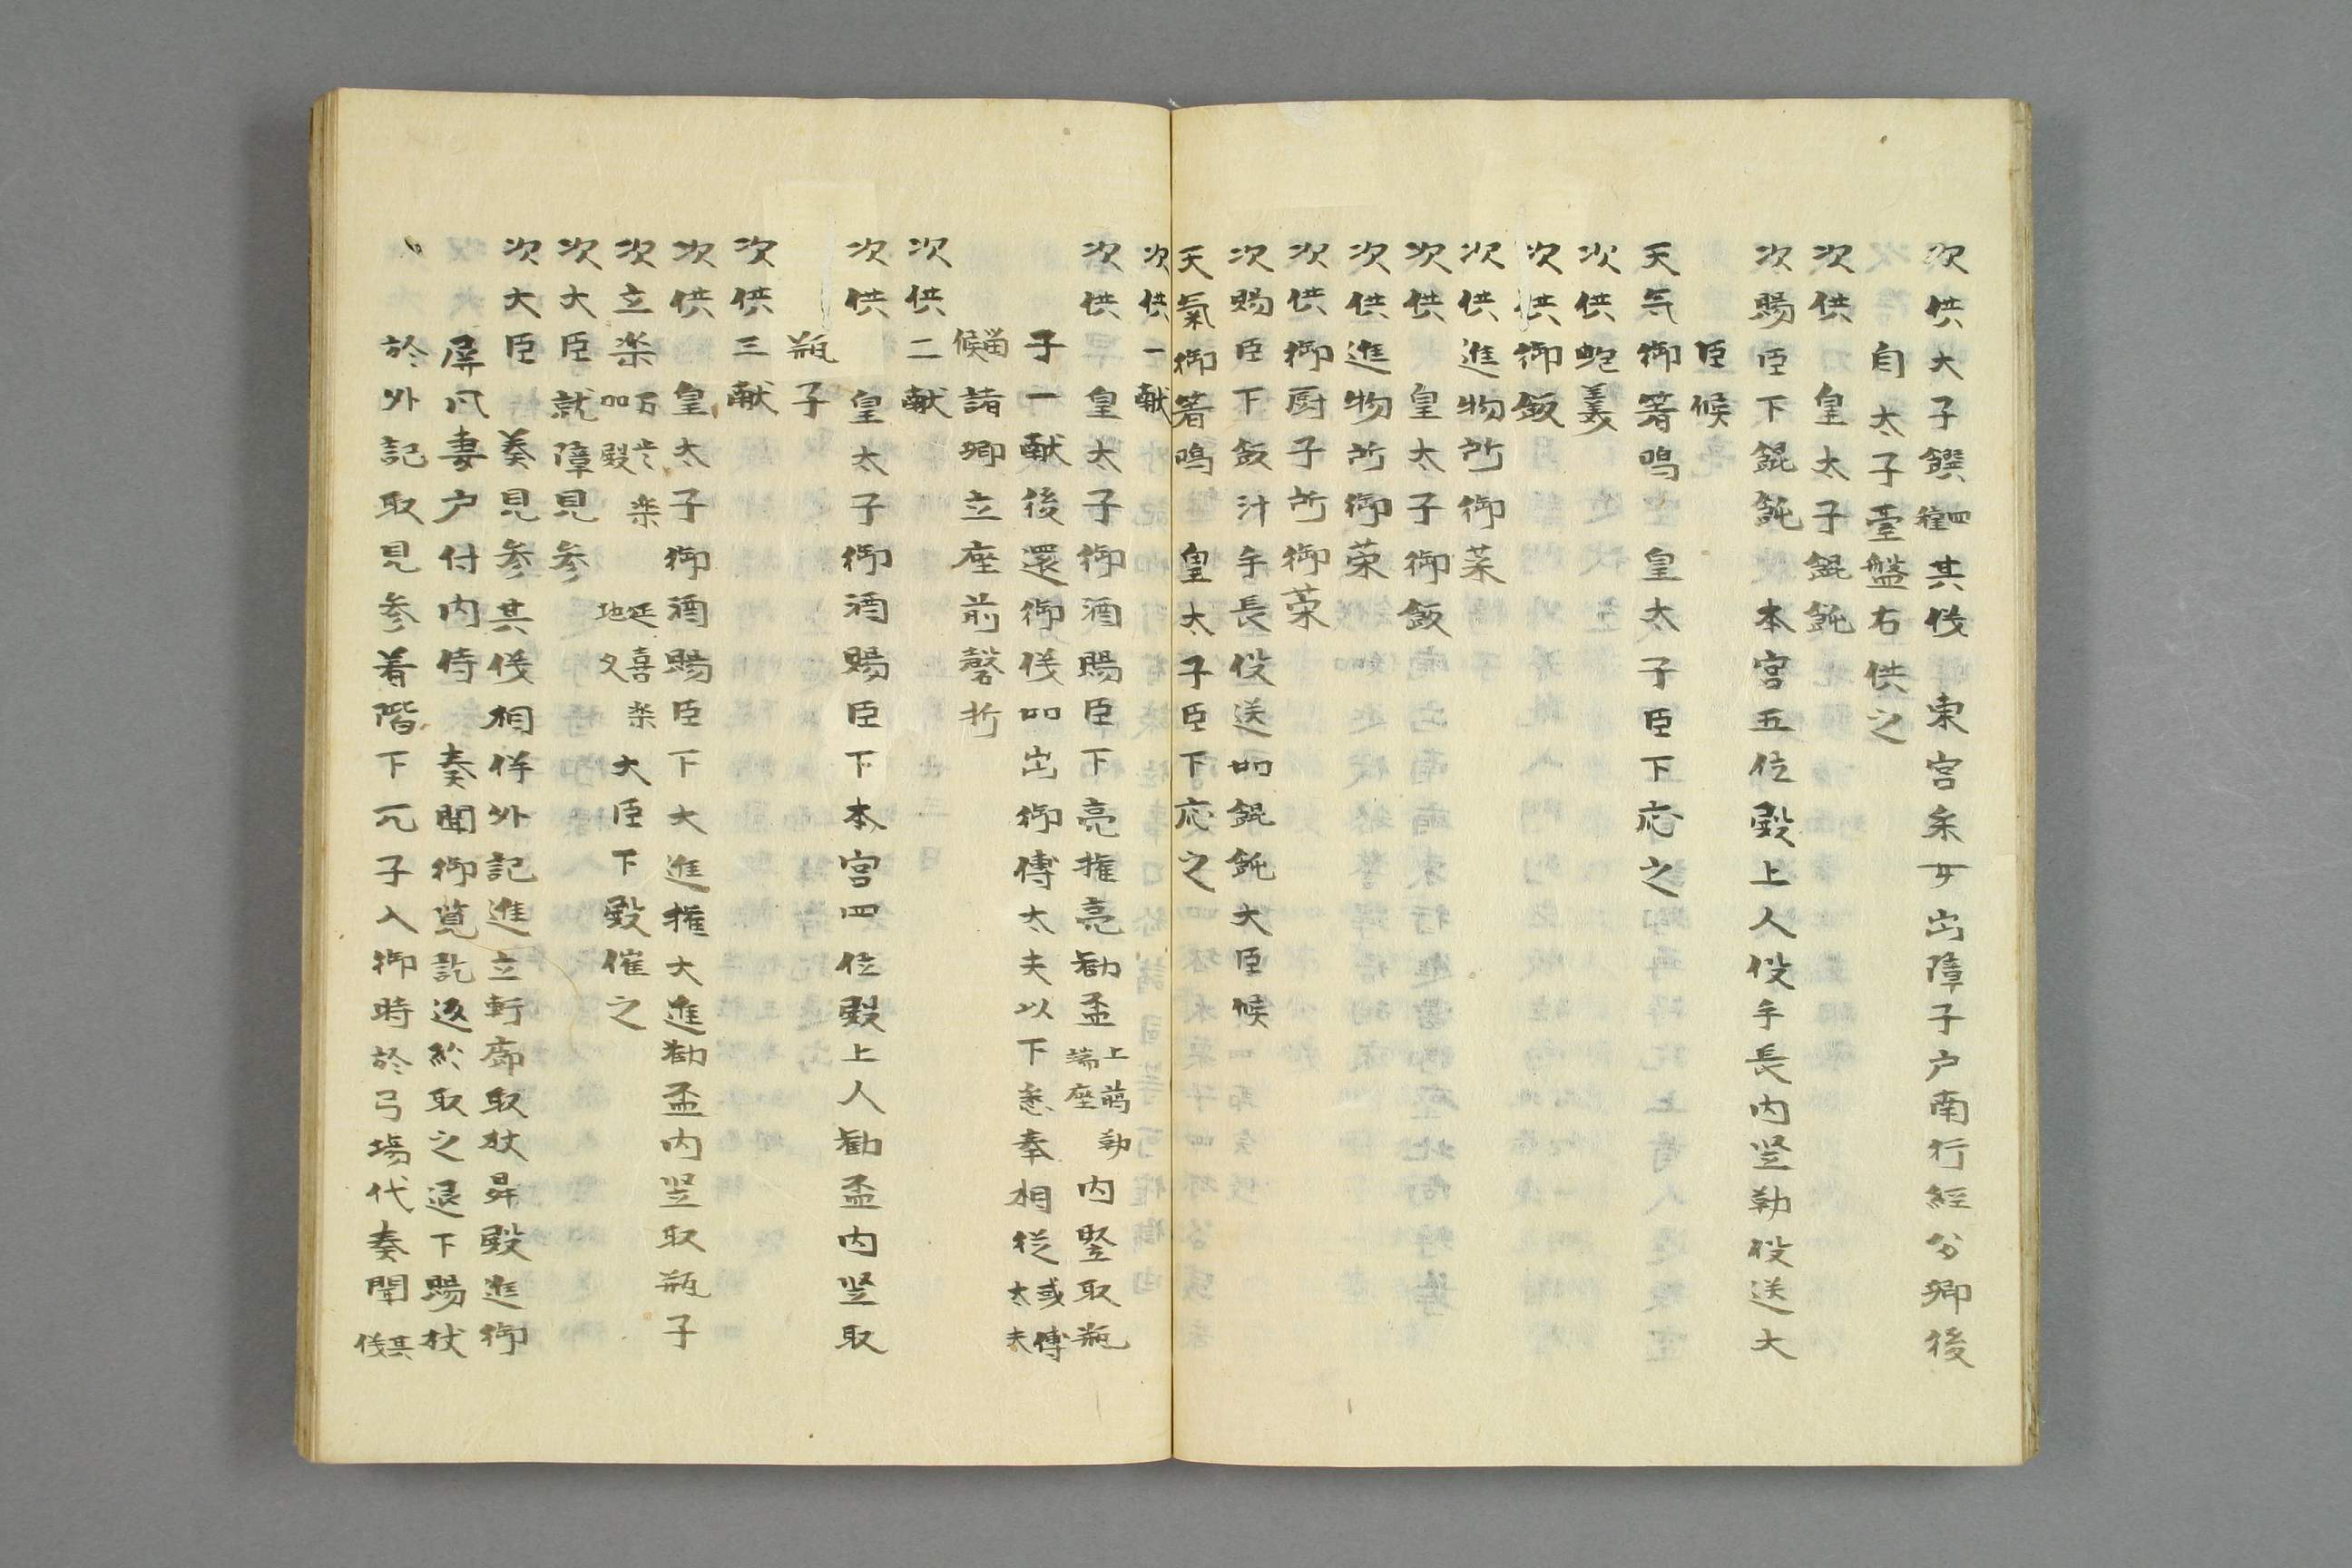 次供太子饌四種其儀東宮采女出障子戸南行経公卿後
自太子臺盤右供之
次供　皇太子餛飩
次賜臣下餛飩　本宮五位殿上人役手長内竪勤役送大
臣候
天気御箸鳴　皇太子臣下応之
次供蚫羹
次供御飯
次供進物所御菜
次供　皇太子御飯
次供進物所御菜
次供御厨子所御菜
次賜臣下飯汁手長役送如餛飩大臣候
天氣御箸鳴　皇太子臣下応之
次供一献
次供　皇太子御酒賜臣下亮権亮勧盃上﨟勤端座内竪取瓶
子一献後還御儀如出御傅大夫以下悉奉相従或傅大夫
猶候諸卿立座前磬折
次供二献
次供　皇太子御酒賜臣下本宮四位殿上人勧盃内竪取
瓶子
次供三献
次供　皇太子御酒賜臣下大進権大進勧盃内竪取瓶子
次立楽万歳楽加殿　延喜楽地久　大臣下殿催之
次大臣就障見参
次大臣　奏見参其儀相伴外記進立軒廊取杖昇殿進御
屏風妻戸付内侍　奏聞御覧訖返給取之退下賜杖
於外記取見参着階下兀子入御時於弓場代奏聞其儀